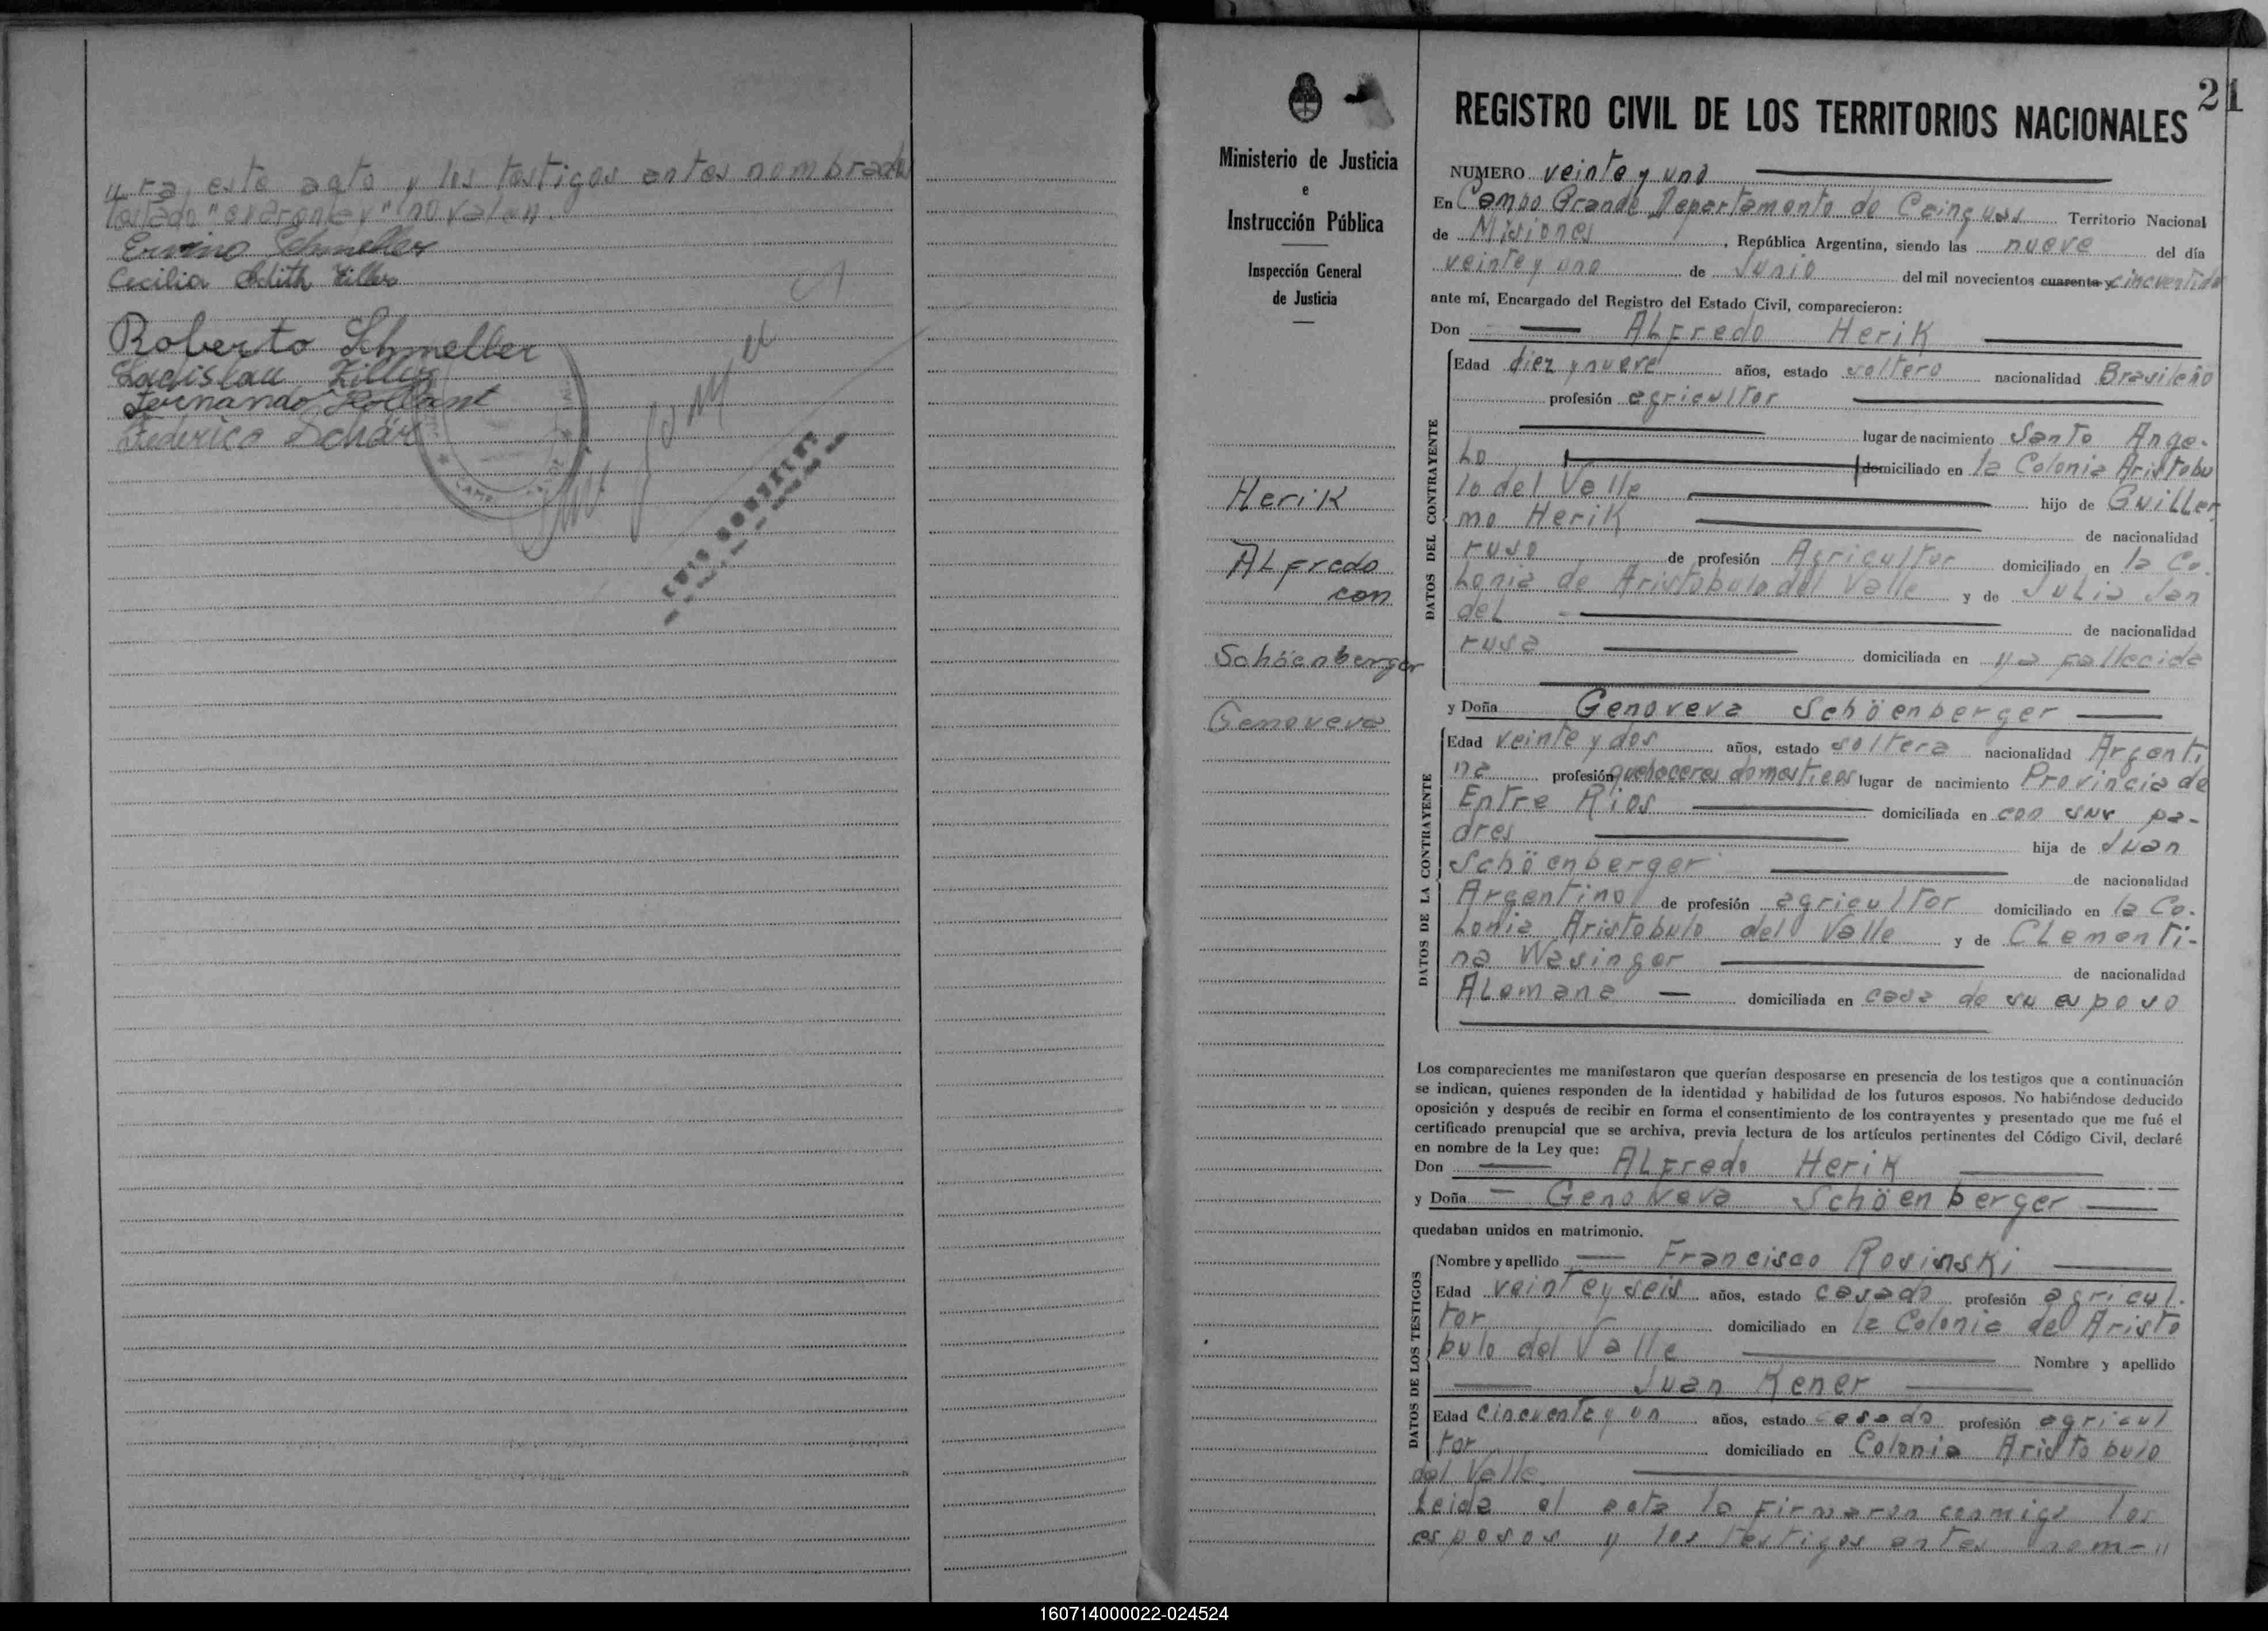 ura, este acto y los testigos antes nombrados
Testado "exargntev" no valen.
Ervino Schmeller
Cecilia Edith Villes
Roberto Schmeller
Ladislau Killes
Fernando Hollant
Federico Schär
21
Ministerio de Justicia
e
Instrucción Pública
Inspección General
de Justicia
Herik
ALfredo
con
Schöenberger
Genoveva
REGISTRO CIVIL DE LOS TERRITORIOS NACIONALES
NUMERO veinte y uno
En Campo Grande Departamento de Cainguas Territorio Nacional
de Misiones, República Argentina, siendo las nueve del día
veinte y uno de Junio del mil novecientos cuarenta y cincuentidos
ante mí, Encargado del Registro del Estado Civil, comparecieron:
Don ALfredo Herik
DATOS DEL CONTRAYENTE
Edad diez y nueve años, estado soltero nacionalidad Brasileño
profesión agricultor
lugar de nacimiento Santo Ange-
Lo domiciliado en la Colonia Aristobu
lo del Valle hijo de Guiller
mo Herik de nacionalidad
ruso de profesión Agricultor domiciliado en la Co.
Lonia de Aristobulo del Valle y de Julia San
del de nacionalidad
rusa domiciliada en ya fallecida
y Doña Genoveva Schöenberger
DATOS DE LA CONTRAYENTE
Edad veinte y dos años, estado soltera nacionalidad Argenti
na profesión quehaceres domesticos lugar de nacimiento Provincia de
Entre Rios domiciliada en con sus pa-
dres hija de Juan
Schöenberger de nacionalidad
Argentino de profesión agricultor domiciliado en la Co.
Lonia Aristobulo del Valle y de CLementi-
na Wasinger de nacionalidad
ALemana domiciliada en casa de su esposo
Los comparecientes me manifestaron que querían desposarse en presencia de los testigos que a continuación
se indican, quienes responden de la identidad y habilidad de los futuros esposos. No habiéndose deducido
oposición y después de recibir en forma el consentimiento de los contrayentes y presentado que me fué el
certificado prenupcial que se archiva, previa lectura de los artículos pertinentes del Código Civil, declaré
en nombre de la Ley que:
Don ALfredo Herik
y Doña Genoveva Schöenberger
quedaban unidos en matrimonio.
DATOS DE LOS TESTIGOS
Nombre y apellido Francisco Rosinski
Edad veinte y seis años, estado casado profesión agricul.
tor domiciliado en la Colonia del Aristo
bulo del Valle Nombre y apellido
Juan Kener
Edad cincuenta y un años, estado casado profesión agricul
tor domiciliado en Colonia Aristobulo
del Valle
Leida el acta la Firmaron conmigo los
esposos y los testigos antes nom-"
160714000022-024524